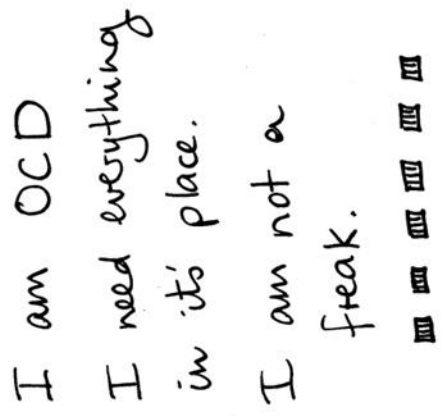 I am OCD
I need everything
in it's place.
I am not a
freak.